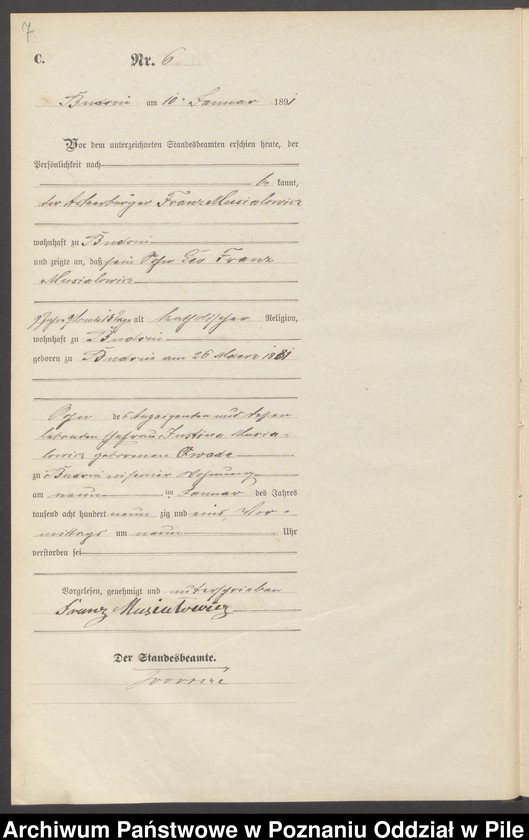 7
C. Nr. 6
Budsin am 10. Januar 1891
Vor dem unterzeichneten Standesbeamten erschien heute, der
Persönlichkeit nach
be kannt,
der Ackerbürger Franz Musialowicz
wohnhaft zu Budsin
und zeigte an, daß sein Sohn Leo Franz
Musialowicz
9 Jahre 9 Monate 14 Tage alt katholischer Religion,
wohnhaft zu Budsin
geboren zu Budsin am 26 Maerz 1881
Sohn des Anzeigenden und dessen
lebenden Ehefrau Justina Musia-
lowicz geborenen
zu Budsin in seiner Wohnung
am neun ten Januar des Jahres
tausend acht hundert neun zig und eins, Vor-
mittags um neun Uhr
verstorben sei
Vorgelesen, genehmigt und unterschrieben
Franz Musialowicz
Der Standesbeamte.
Archiwum Państwowe w Poznaniu Oddział w Pile